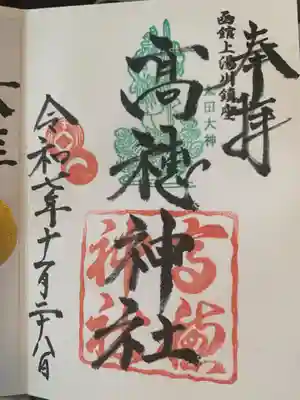 奉拝
函館上湯川鎮座
田大神
高穂神社
高穂神社
令和七年十一月二十八日